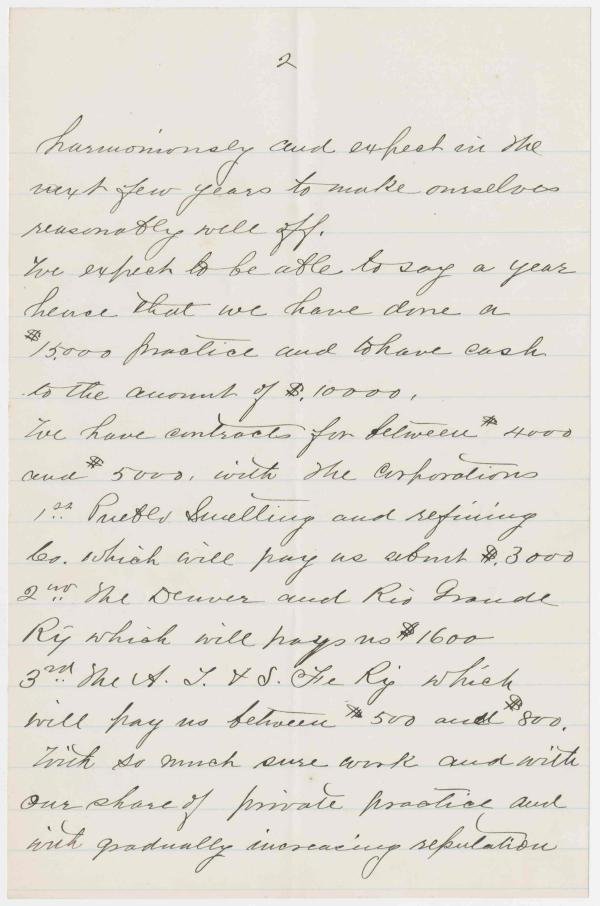 2
harmoniously and expect in the
next few years to make ourselves
reasonably well off.
We expect to be able to say a year
hence that we have done a
$15.000 practice and to have cash
to the amount of $.10000.
We have contracts for between $4000
and $5000. with the corporations
1st. Pueblo Smelting and refining
Co. which will pay us about $.3000
2nd. The Denver and Rio Grande
Ry which will pays us $1600
3rd. The A. T. & S. Fe Ry which
will pay us between $500 and $800.
With so much sure work and with
our share of private practice and
with gradually increasing reputation